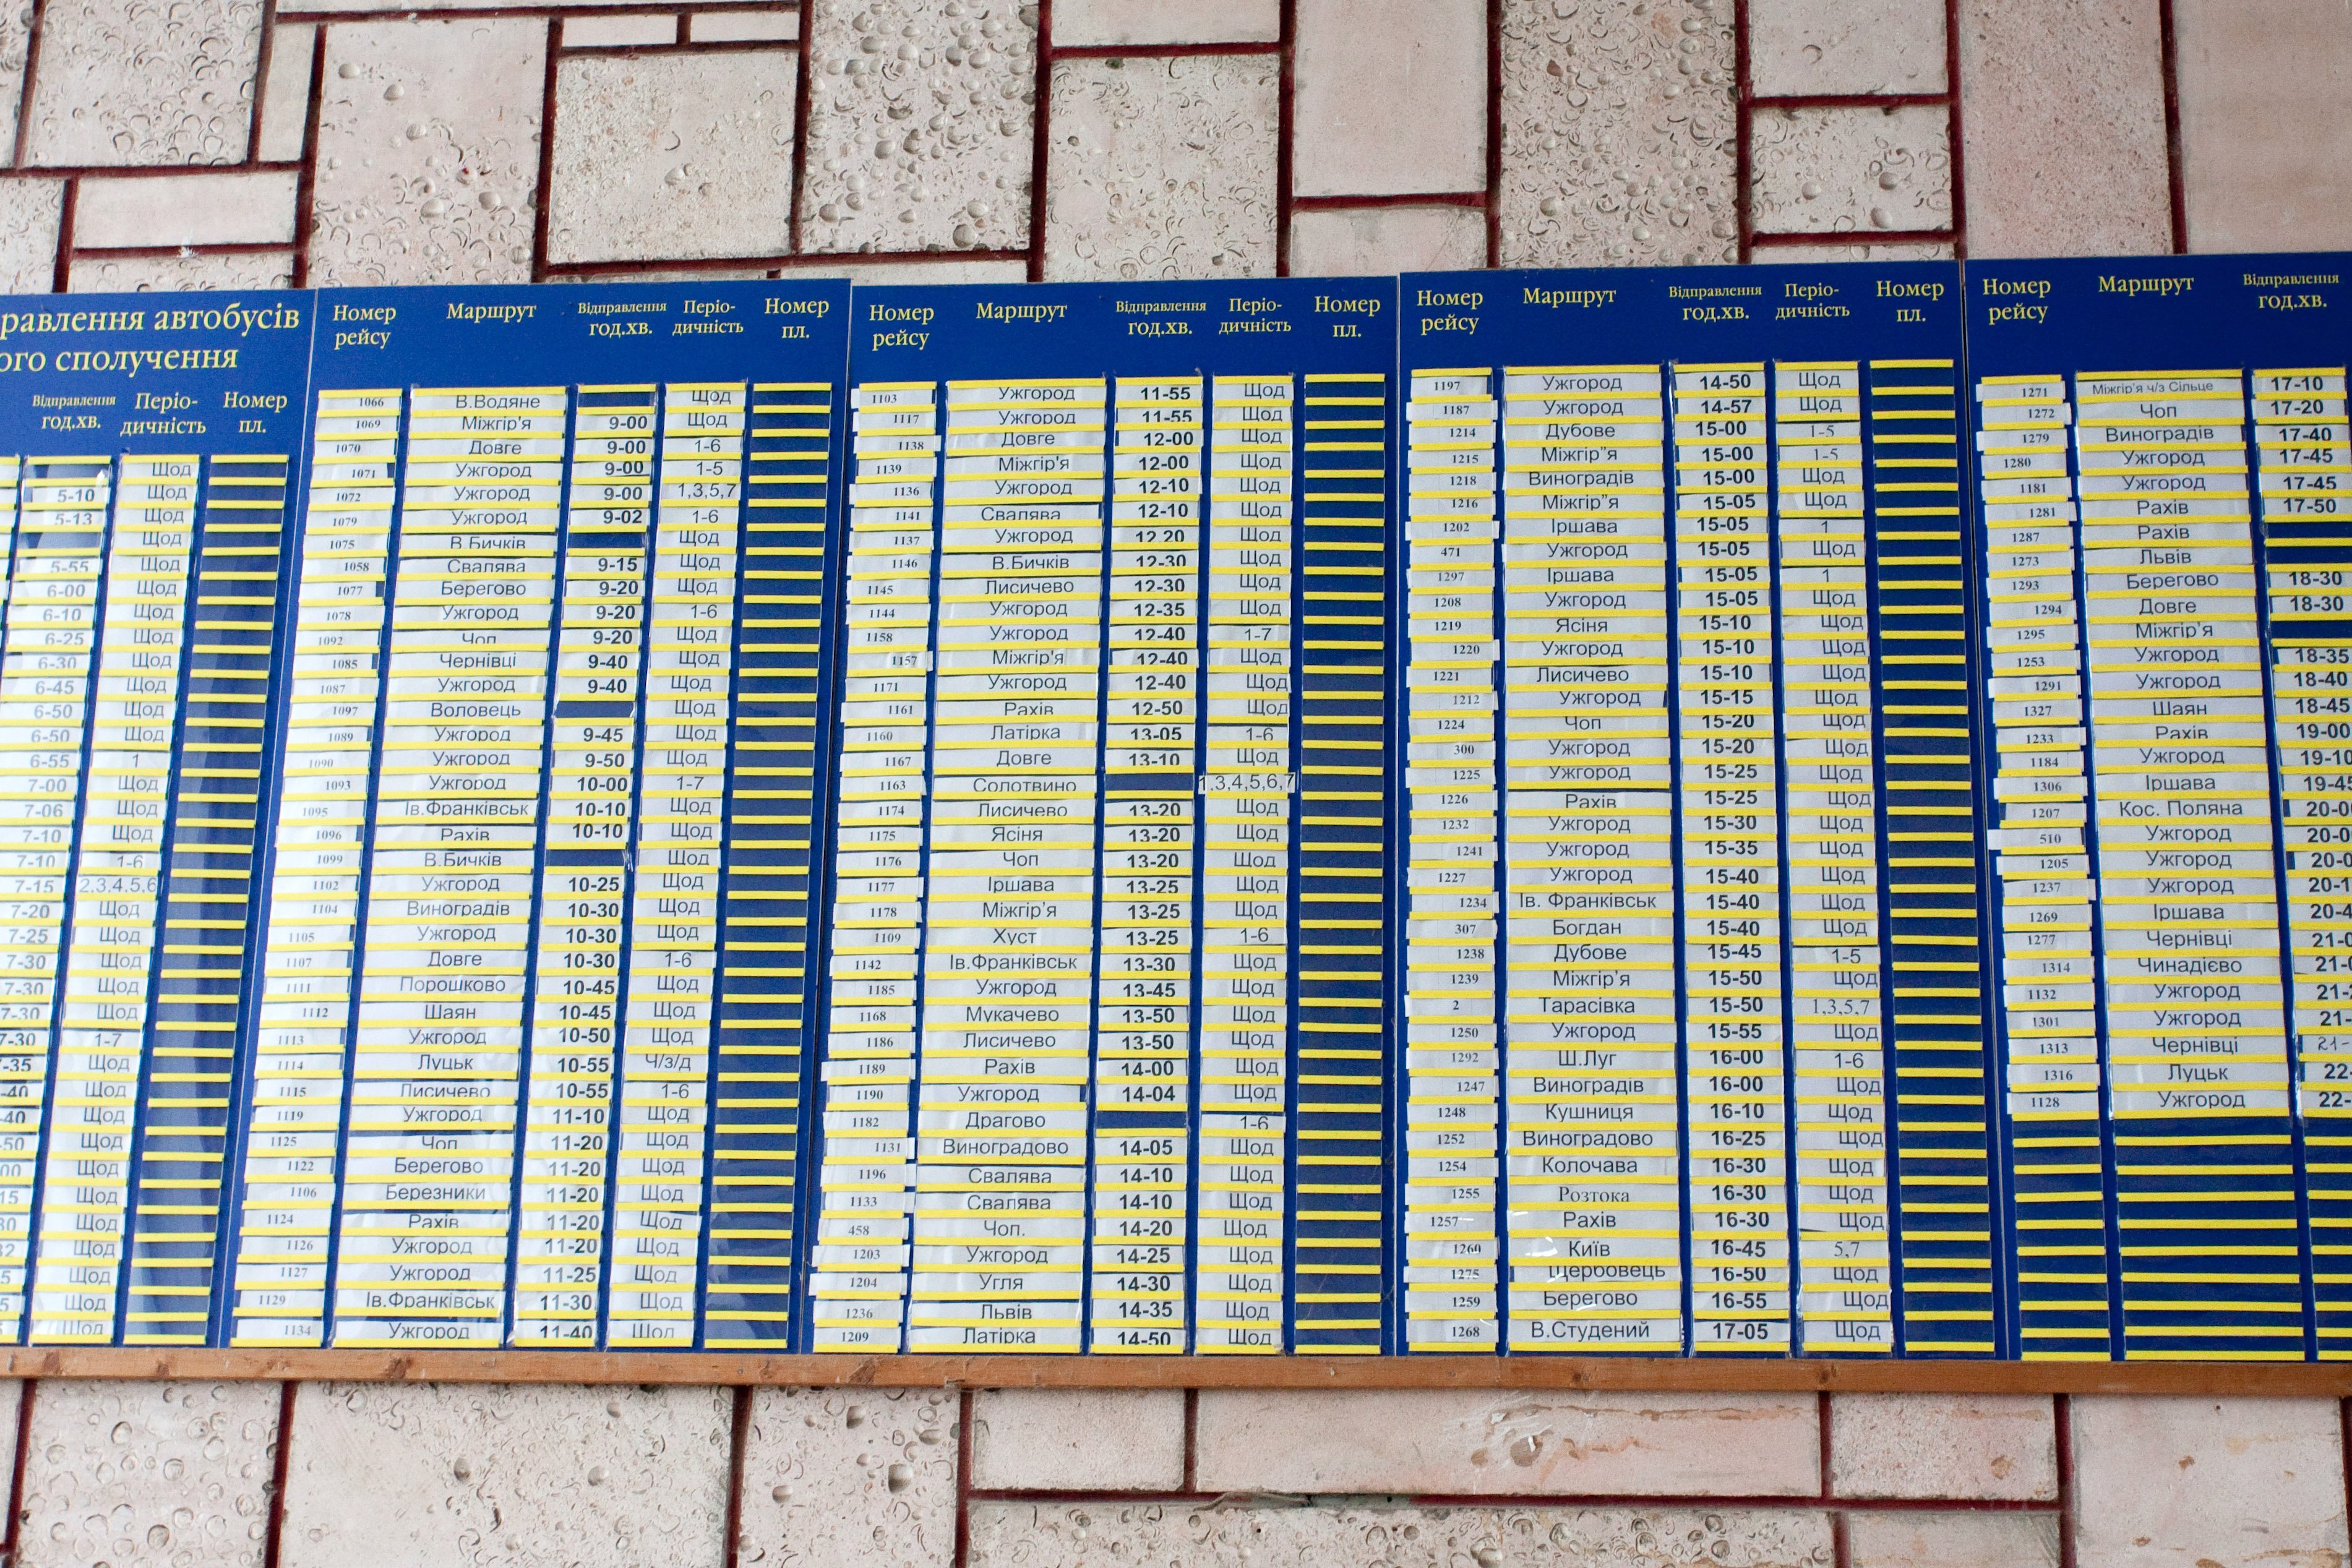 равлення автобусів
ого сполучення
Відправлення год.хв. Періо-дичність Номер пл.
Щод
5-10 Щод
5-13 Щод
Щод
5-55 Щод
6-00 Щод
6-10 Щод
6-25 Щод
6-30 Щод
6-45 Щод
6-50 Щод
6-50 Щод
6-55 1
7-00 Щод
7-06 Щод
7-10 Щод
7-10 1-6
7-15 2,3,4,5,6
7-20 Щод
7-25 Щод
7-30 Щод
7-30 Щод
7-30 Щод
7-30 1-7
-35 Щод
-40 Щод
-40 Щод
-50 Щод
00 Щод
15 Щод
30 Щод
32 Щод
5 Щод
5 Щод
Щод
Номер рейсу Маршрут Відправлення год.хв. Періо-дичність Номер пл.
1066 В.Водяне Щод
1069 Міжгір'я 9-00 Щод
1070 Довге 9-00 1-6
1071 Ужгород 9-00 1-5
1072 Ужгород 9-00 1,3,5,7
1079 Ужгород 9-02 1-6
1075 В.Бичків Щод
1058 Свалява 9-15 Щод
1077 Берегово 9-20 Щод
1078 Ужгород 9-20 1-6
1092 Чоп 9-20 Щод
1085 Чернівці 9-40 Щод
1087 Ужгород 9-40 Щод
1097 Воловець Щод
1089 Ужгород 9-45 Щод
1090 Ужгород 9-50 Щод
1093 Ужгород 10-00 1-7
1095 Ів.Франківськ 10-10 Щод
1096 Рахів 10-10 Щод
1099 В.Бичків Щод
1102 Ужгород 10-25 Щод
1104 Виноградів 10-30 Щод
1105 Ужгород 10-30 Щод
1107 Довге 10-30 1-6
1111 Порошково 10-45 Щод
1112 Шаян 10-45 Щод
1113 Ужгород 10-50 Щод
1114 Луцьк 10-55 Ч/з/д
1115 Лисичево 10-55 1-6
1119 Ужгород 11-10 Щод
1125 Чоп 11-20 Щод
1122 Берегово 11-20 Щод
1106 Березники 11-20 Щод
1124 Рахів 11-20 Щод
1126 Ужгород 11-20 Щод
1127 Ужгород 11-25 Щод
1129 Ів.Франківськ 11-30 Щод
1134 Ужгород 11-40 Щод
Номер рейсу Маршрут Відправлення год.хв. Періо-дичність Номер пл.
1103 Ужгород 11-55 Щод
1117 Ужгород 11-55 Щод
1138 Довге 12-00 Щод
1139 Міжгір'я 12-00 Щод
1136 Ужгород 12-10 Щод
1141 Свалява 12-10 Щод
1137 Ужгород 12 20 Щод
1146 В.Бичків 12-30 Щод
1145 Лисичево 12-30 Щод
1144 Ужгород 12-35 Щод
1158 Ужгород 12-40 1-7
1157 Міжгір'я 12-40 Щод
1171 Ужгород 12-40 Щод
1161 Рахів 12-50 Щод
1160 Латірка 13-05 1-6
1167 Довге 13-10 Щод
1163 Солотвино 1,3,4,5,6,7
1174 Лисичево 13-20 Щод
1175 Ясіня 13-20 Щод
1176 Чоп 13-20 Щод
1177 Іршава 13-25 Щод
1178 Міжгір’я 13-25 Щод
1109 Хуст 13-25 1-6
1142 Ів.Франківськ 13-30 Щод
1185 Ужгород 13-45 Щод
1168 Мукачево 13-50 Щод
1186 Лисичево 13-50 Щод
1189 Рахів 14-00 Щод
1190 Ужгород 14-04 Щод
1182 Драгово 1-6
1131 Виноградово 14-05 Щод
1196 Свалява 14-10 Щод
1133 Свалява 14-10 Щод
458 Чоп. 14-20 Щод
1203 Ужгород 14-25 Щод
1204 Угля 14-30 Щод
1236 Львів 14-35 Щод
1209 Латірка 14-50 Щод
Номер рейсу Маршрут Відправлення год.хв. Періо-дичність Номер пл.
1197 Ужгород 14-50 Щод
1187 Ужгород 14-57 Щод
1214 Дубове 15-00 1-5
1215 Міжгір"я 15-00 1-5
1218 Виноградів 15-00 Щод
1216 Міжгір"я 15-05 Щод
1202 Іршава 15-05 1
471 Ужгород 15-05 Щод
1297 Іршава 15-05 1
1208 Ужгород 15-05 Щод
1219 Ясіня 15-10 Щод
1220 Ужгород 15-10 Щод
1221 Лисичево 15-10 Щод
1212 Ужгород 15-15 Щод
1224 Чоп 15-20 Щод
300 Ужгород 15-20 Щод
1225 Ужгород 15-25 Щод
1226 Рахів 15-25 Щод
1232 Ужгород 15-30 Щод
1241 Ужгород 15-35 Щод
1227 Ужгород 15-40 Щод
1234 Ів. Франківськ 15-40 Щод
307 Богдан 15-40 Щод
1238 Дубове 15-45 1-5
1239 Міжгір’я 15-50 Щод
2 Тарасівка 15-50 1,3,5,7
1250 Ужгород 15-55 Щод
1292 Ш.Луг 16-00 1-6
1247 Виноградів 16-00 Щод
1248 Кушниця 16-10 Щод
1252 Виноградово 16-25 Щод
1254 Колочава 16-30 Щод
1255 Розтока 16-30 Щод
1257 Рахів 16-30 Щод
1260 Київ 16-45 5,7
1275 Щербовець 16-50 Щод
1259 Берегово 16-55 Щод
1268 В.Студений 17-05 Щод
Номер рейсу Маршрут Відправлення год.хв.
1271 Міжгір'я ч/з Сільце 17-10
1272 Чоп 17-20
1279 Виноградів 17-40
1280 Ужгород 17-45
1181 Ужгород 17-45
1281 Рахів 17-50
1287 Рахів
1273 Львів
1293 Берегово 18-30
1294 Довге 18-30
1295 Міжгір’я
1253 Ужгород 18-35
1291 Ужгород 18-40
1327 Шаян 18-45
1233 Рахів 19-00
1184 Ужгород 19-10
1306 Іршава 19-45
1207 Кос. Поляна 20-0
510 Ужгород 20-0
1205 Ужгород 20-0
1237 Ужгород 20-1
1269 Іршава 20-4
1277 Чернівці 21-0
1314 Чинадієво 21-0
1132 Ужгород 21-
1301 Ужгород 21-
1313 Чернівці 21-
1316 Луцьк 22-
1128 Ужгород 22-